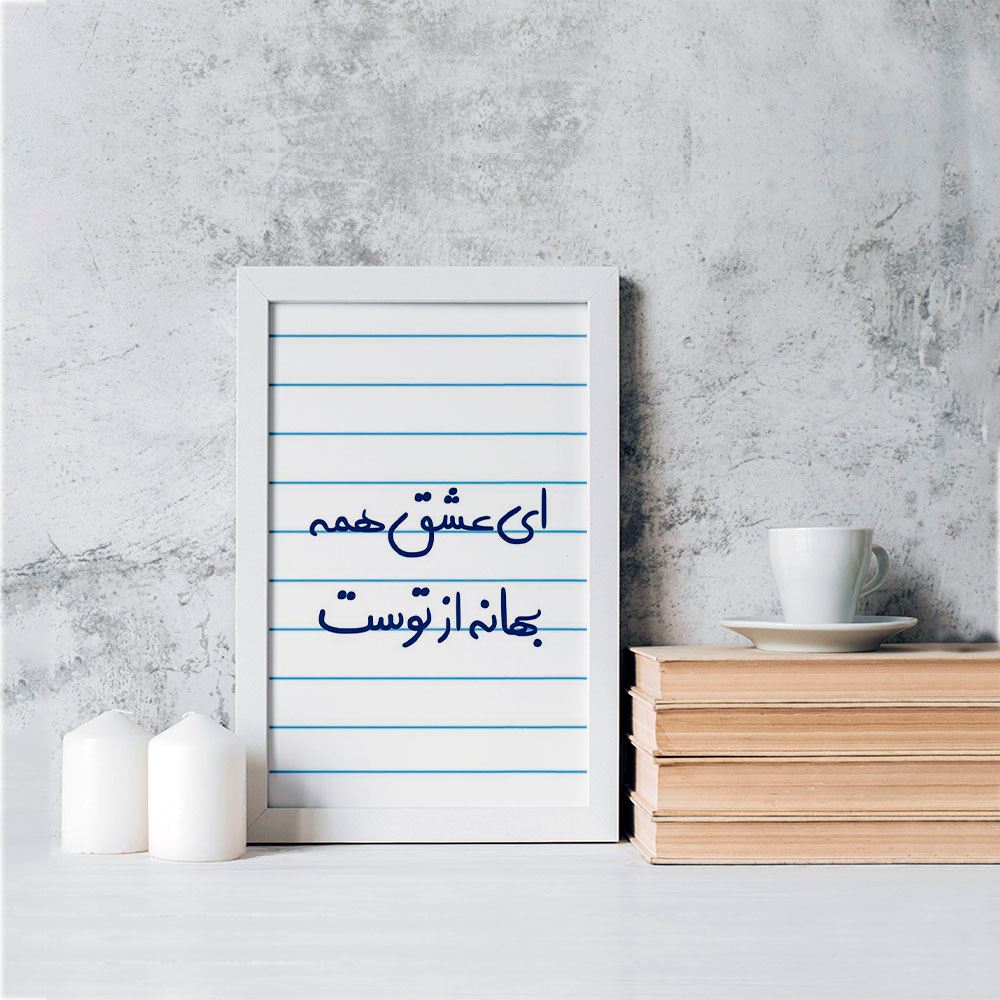 ای عشق همه
بهانه از توست